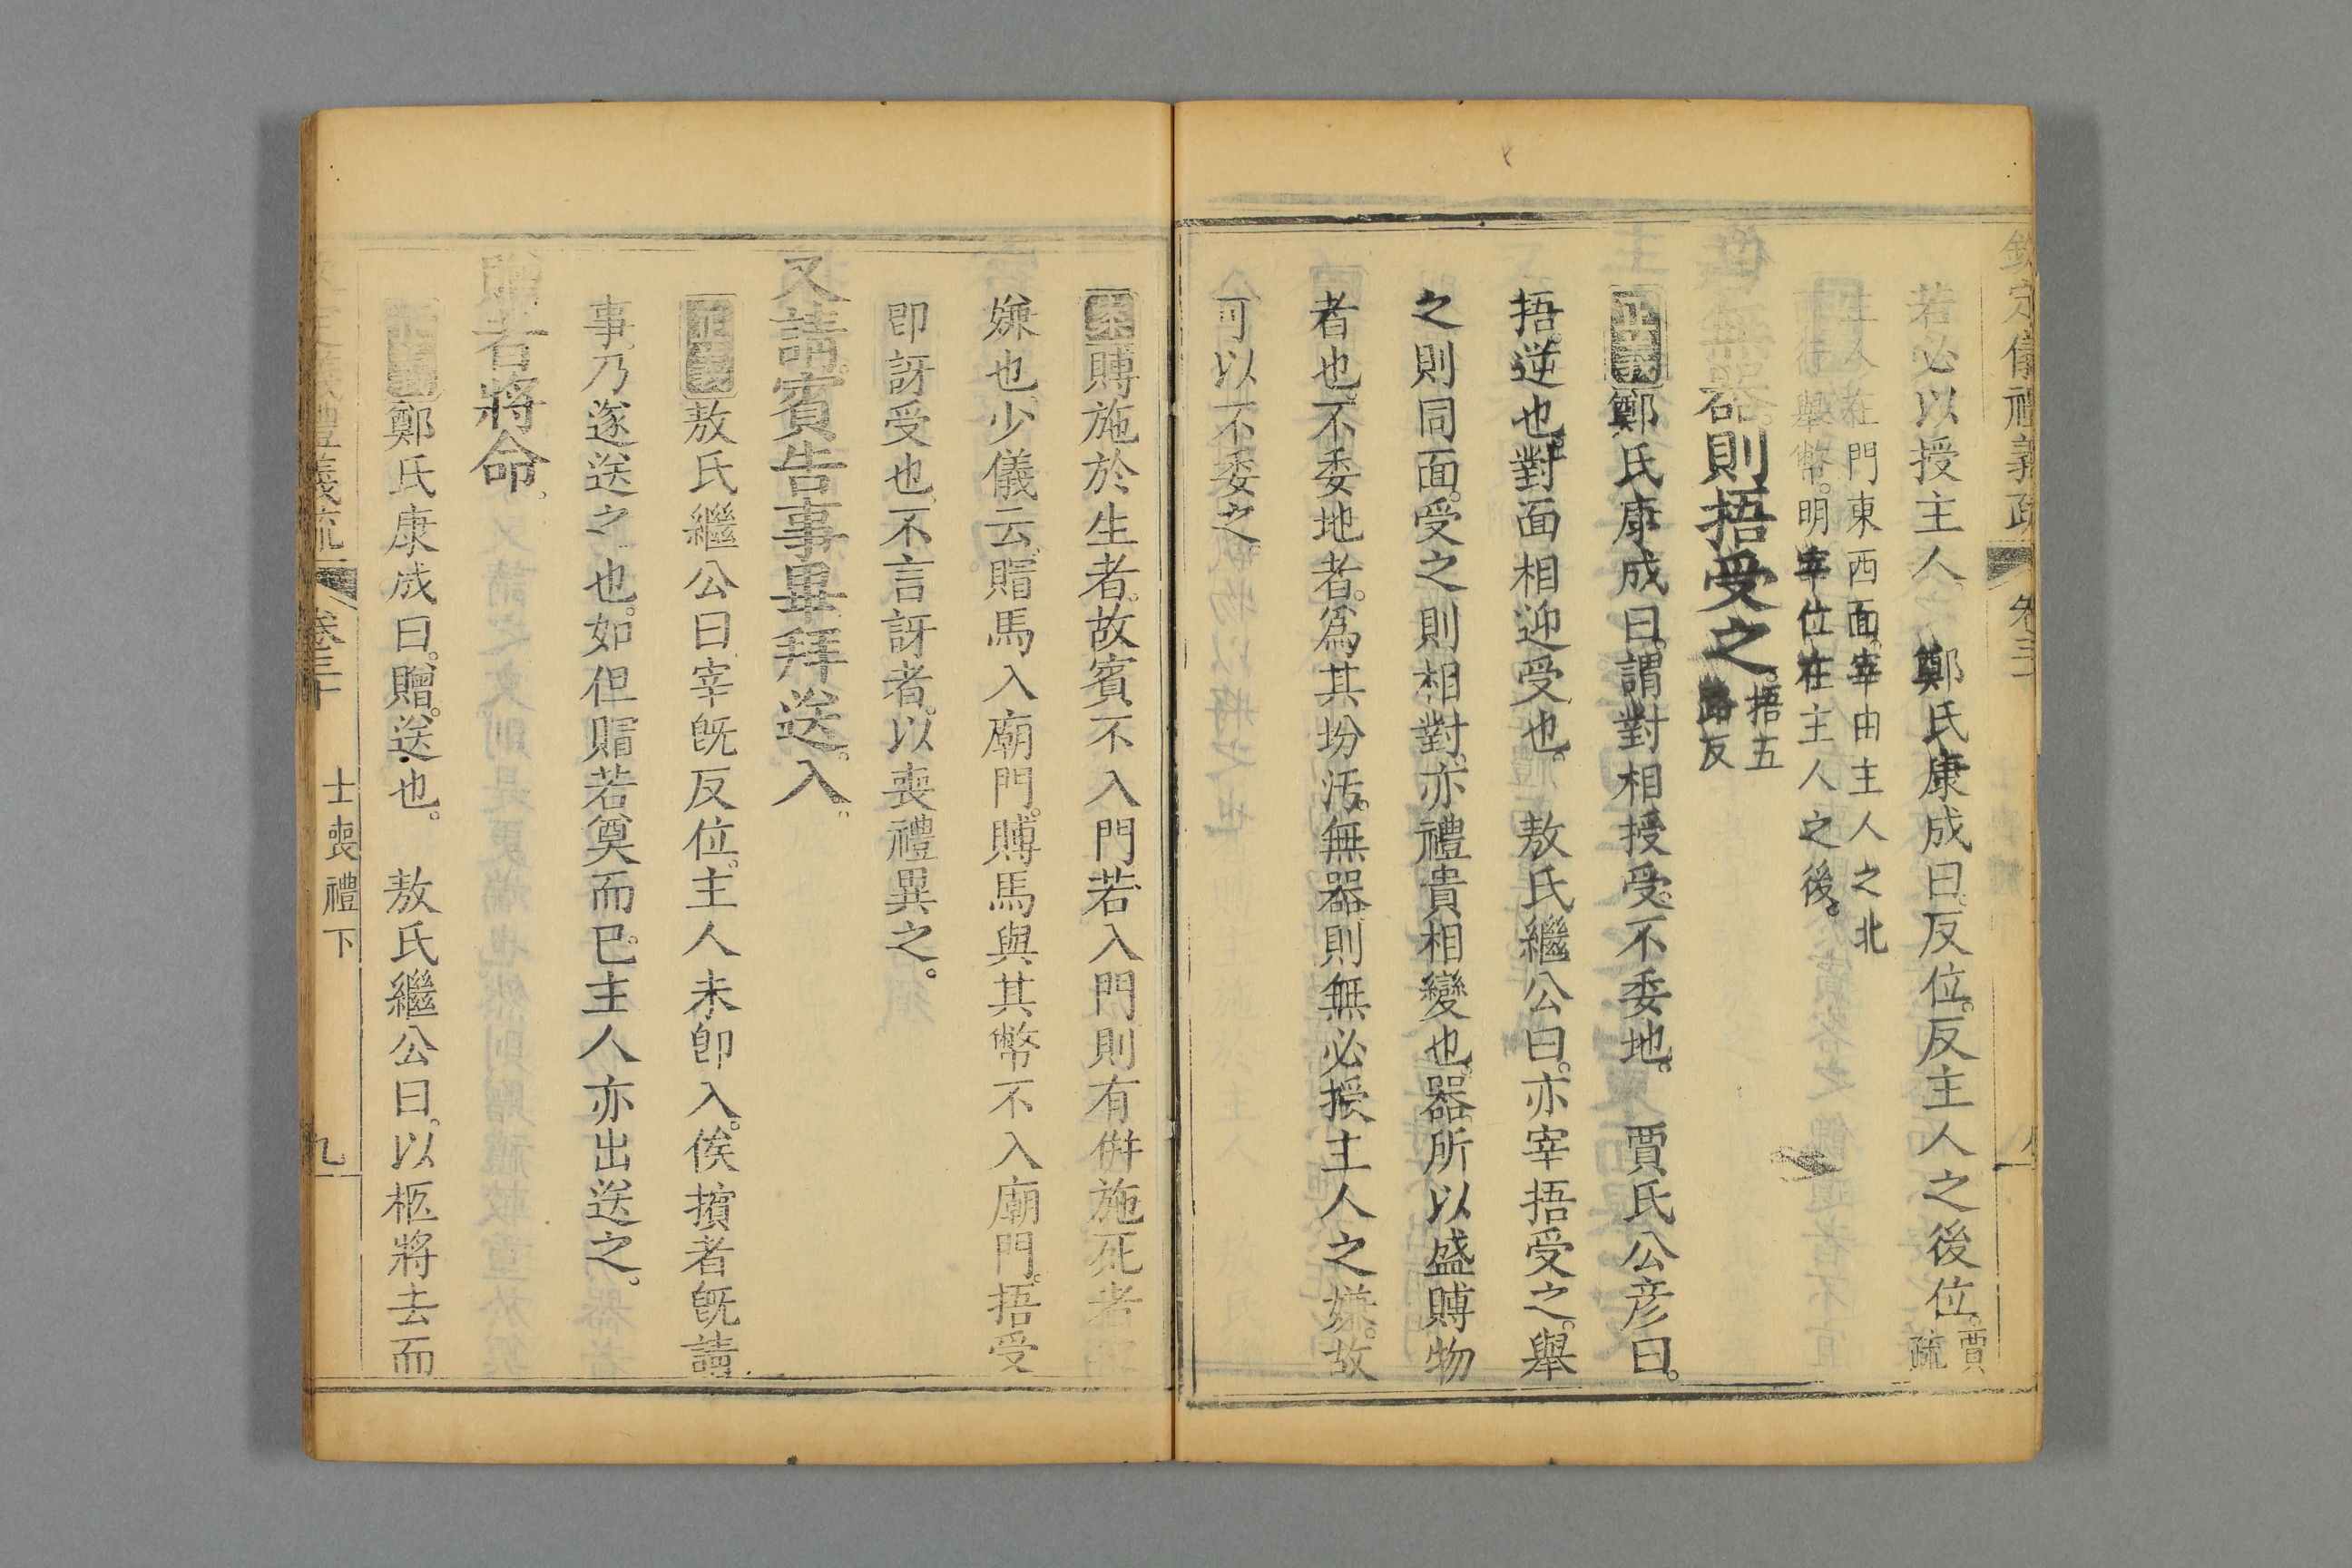 欽定儀禮義疏 卷三十
若必以授主人。 鄭氏康成曰。反位。反主人之後位。賈疏
主人在門東西面。宰由主人之北
行舉幣。明宰位在主人之後。
無器。則捂受之。捂五路反
正義鄭氏康成曰。謂對相授受。不委地。 賈氏公彦曰。
捂。逆也。對面相迎受也。 敖氏繼公曰。亦宰捂受之。舉
之則同面。受之則相對。亦禮貴相變也。器所以盛賻物
者也。不委地者。爲其坋汚。無器則無必授主人之嫌。故
可以不委之。
案賻施於生者。故賓不入門。若入門則有倂施死者
嫌也。少儀云。賵馬入廟門。賻馬與其幣不入廟門。捂受
卽訝受也。不言訝者。以喪禮異之。
又請。賓告事畢。拜送。入。
正義敖氏繼公曰。宰旣反位。主人未卽入。俟擯者旣請
事。乃遂送之也。如但賵若奠而已。主人亦出送之。
贈者將命。
正義鄭氏康成曰。贈。送也。 敖氏繼公曰。以柩將去而
欽定儀禮義疏 卷三十 士喪禮下 九